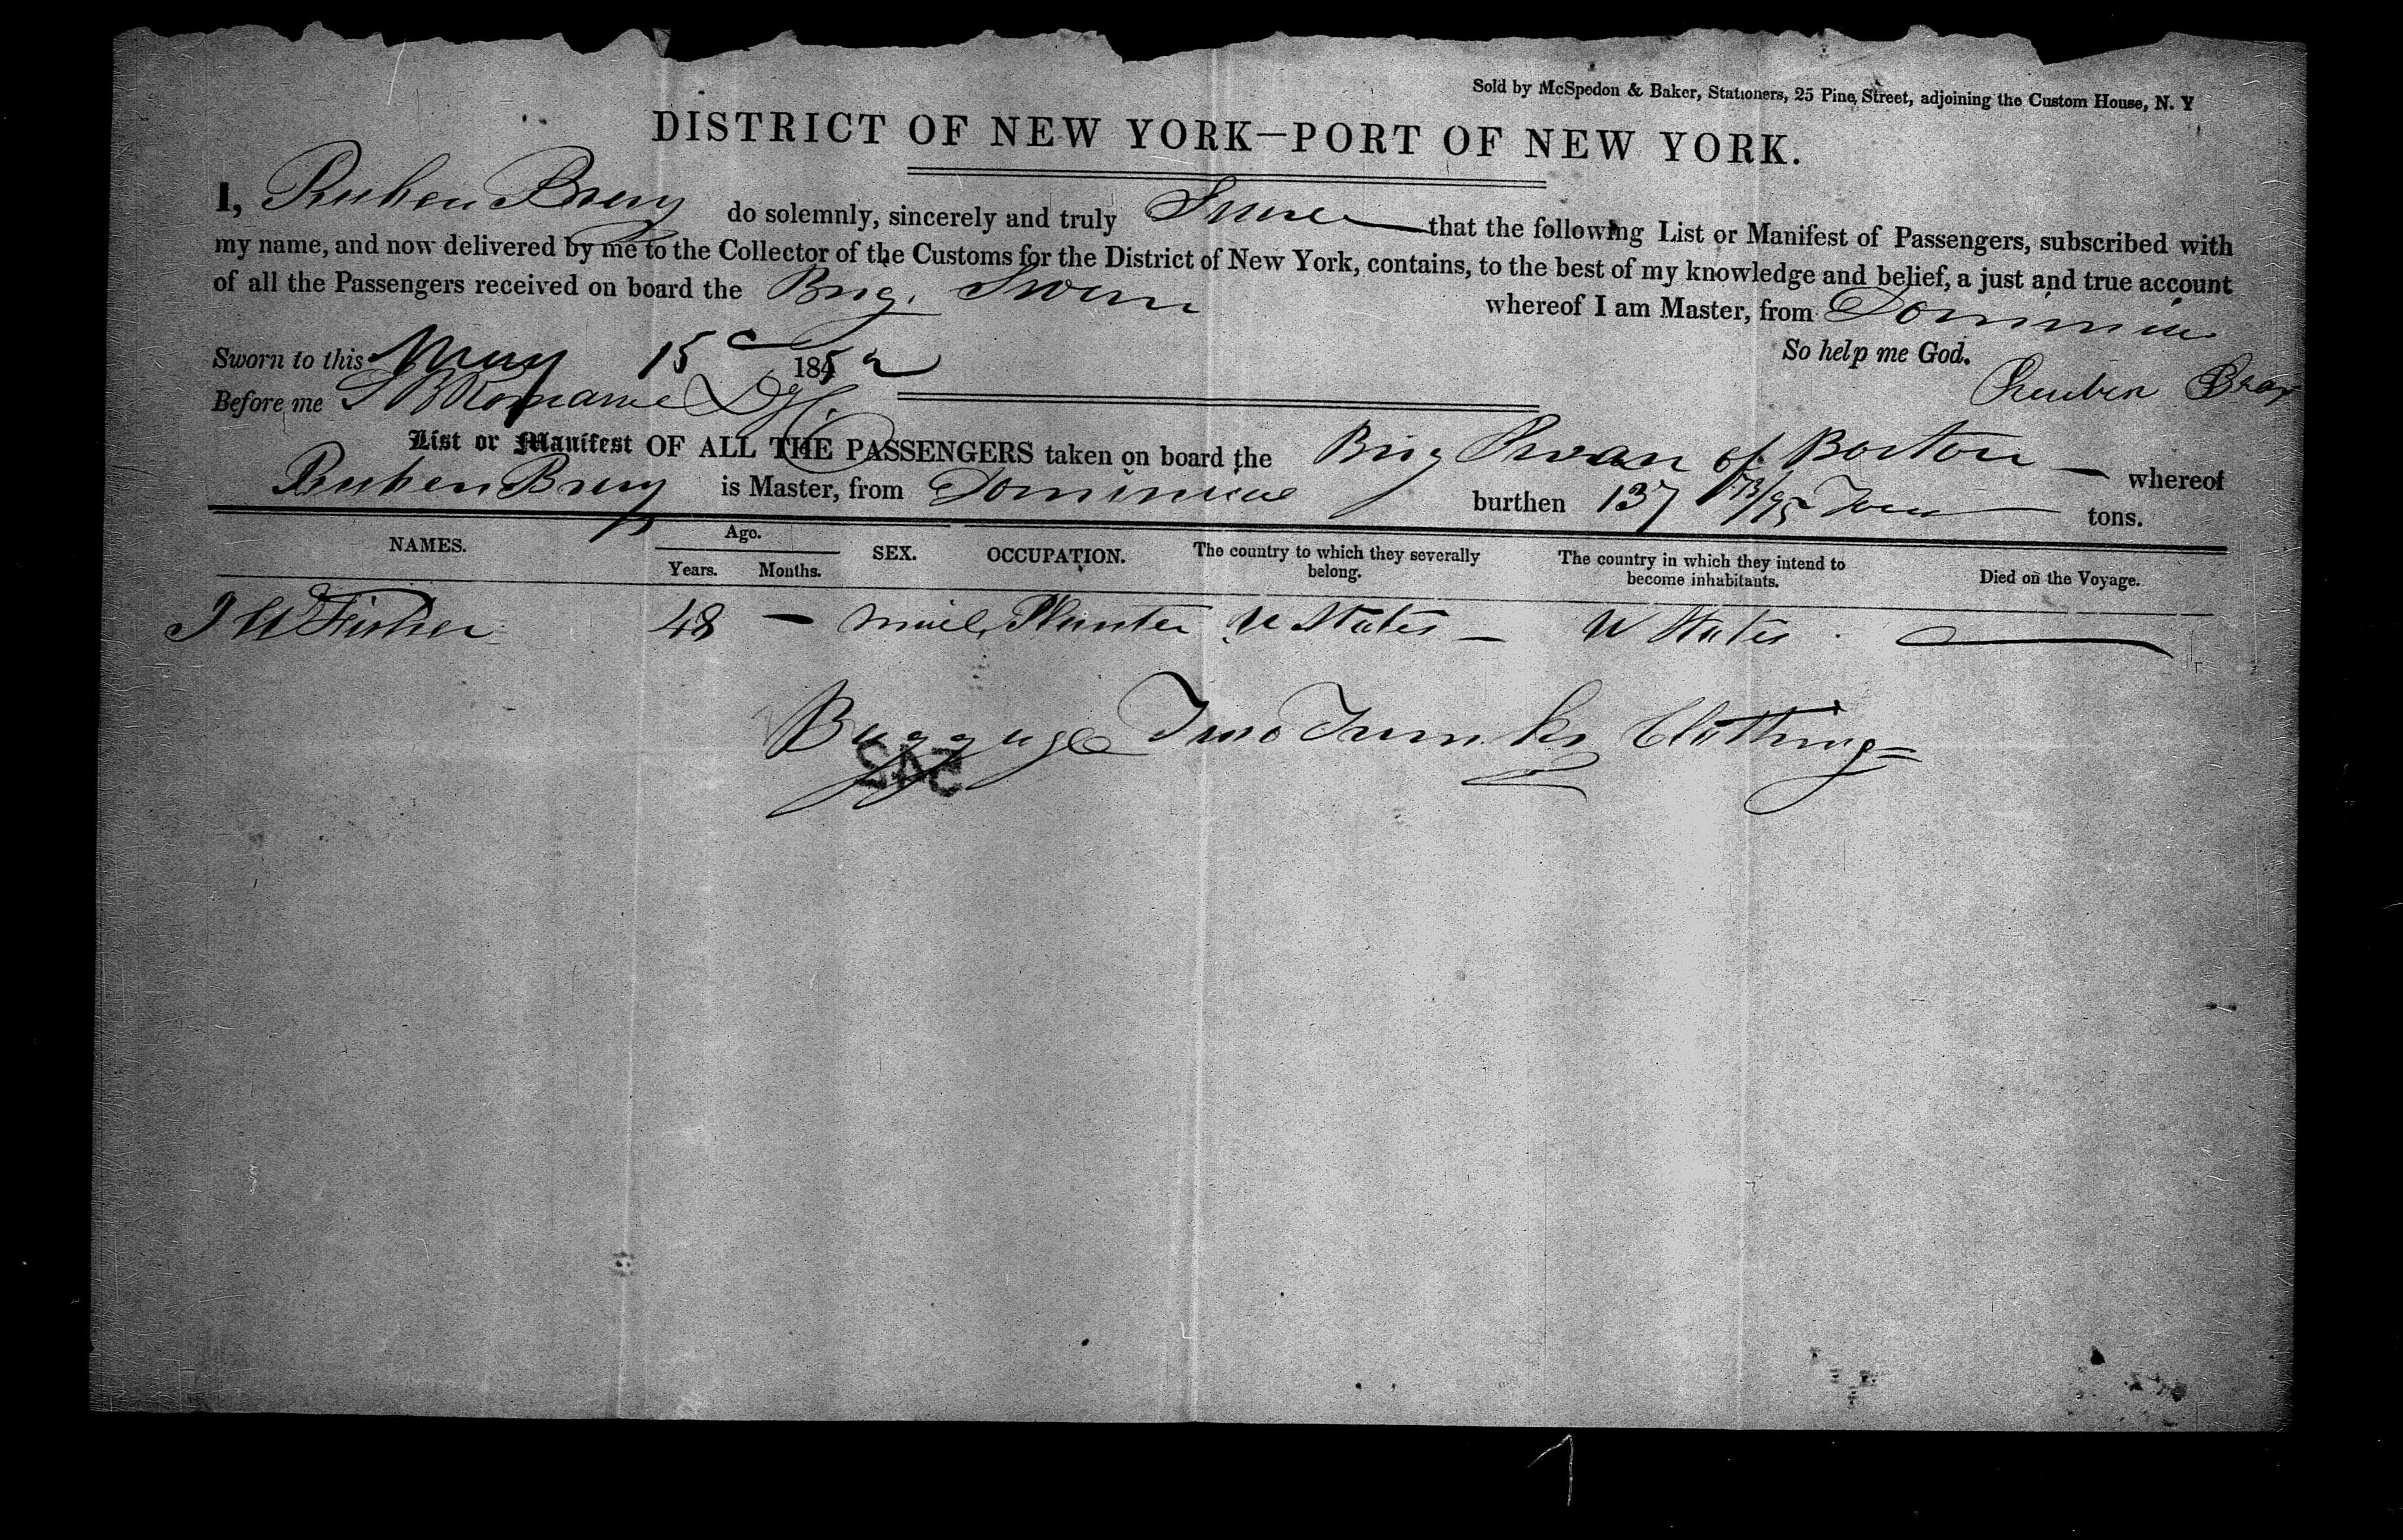 Sold by McSpedon & Baker, Stationers, 25 Pine Street, adjoining the Custom House, N. Y
DISTRICT OF NEW YORK—PORT OF NEW YORK.
I, Reuben Bray do solemnly, sincerely and truly Swear that the following List or Manifest of Passengers, subscribed with
my name, and now delivered by me to the Collector of the Customs for the District of New York, contains, to the best of my knowledge and belief, a just and true account
of all the Passengers received on board the Brig. Swan whereof I am Master, from Dominica
Sworn to this May 15 1852 So help me God.
Before me S B Romaine Reuben Bray
List or Manifest OF ALL THE PASSENGERS taken on board the Brig Swan of Boston — whereof
Reuben Bray is Master, from Dominica burthen 137 73/95 Tons tons.
NAMES. Age. SEX. OCCUPATION. The country to which they severally belong. The country in which they intend to become inhabitants. Died on the Voyage.
Years. Months.
J W Fisher 48 — male Planter U States — U States
Baggage Two Trunks Clothing
542
1